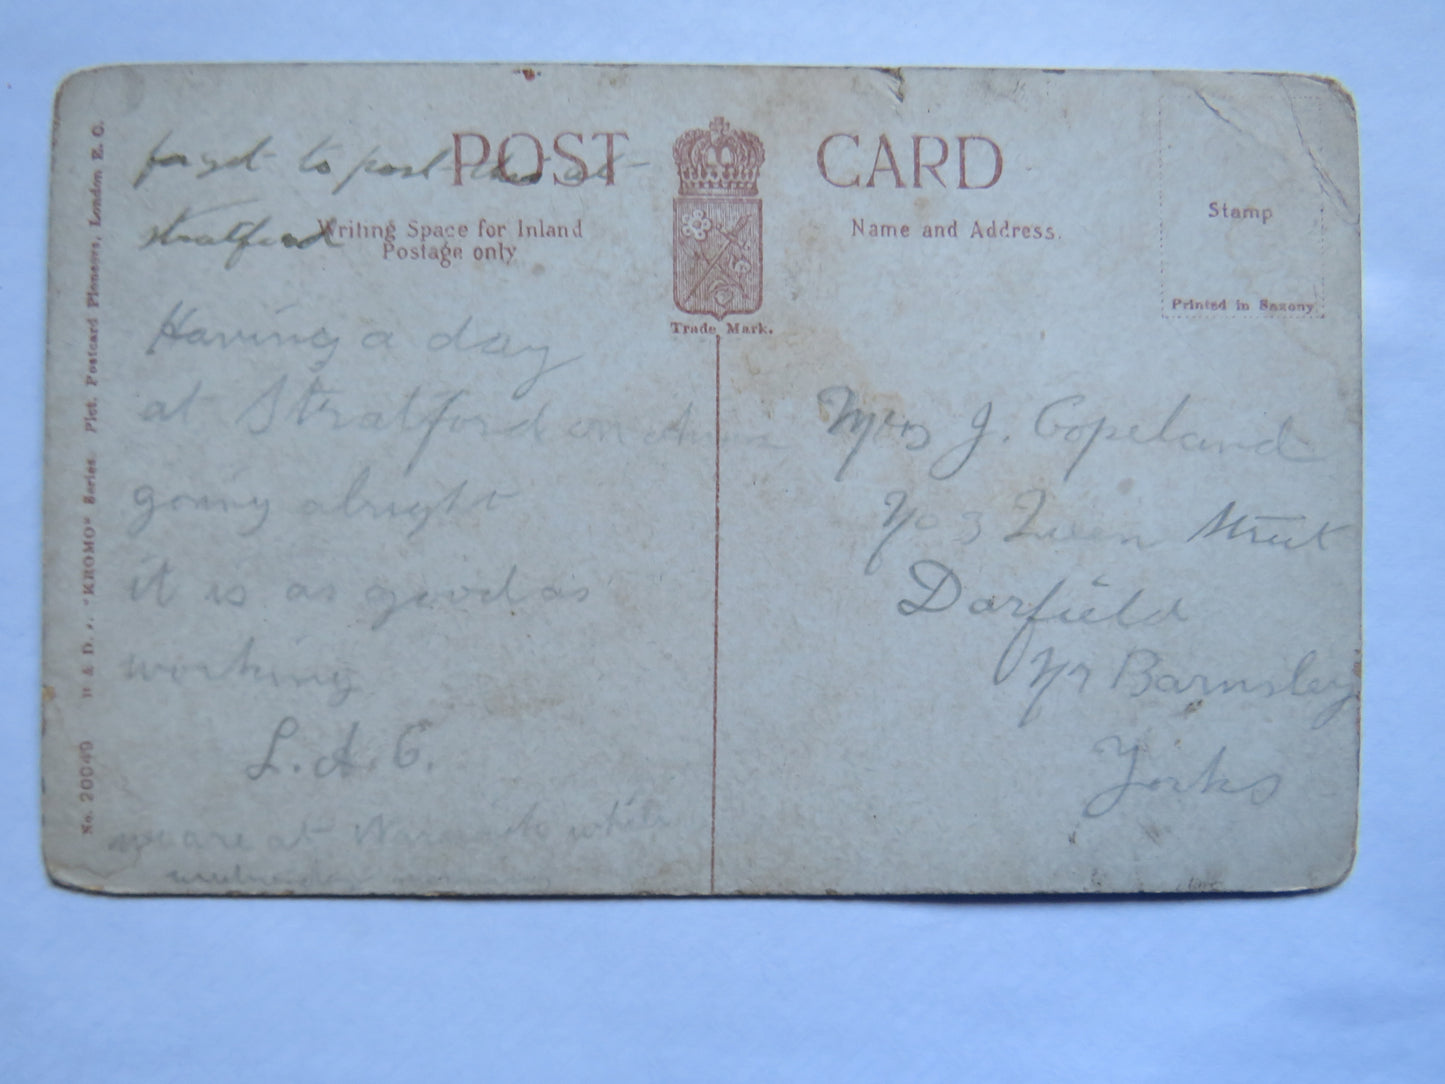 POST CARD
Writing Space for Inland
Postage only
Name and Address.
Stamp
Printed in Saxony
Trade Mark.
No. 20049 "KROMO" Series. Pict. Postcard Pioneers, London E. C.
forget to post this at
Stratford
Having a day
at Stratford on
going alright
it is as good as
working
L. A. C.
we are at while
wednesday morning
Mrs J. Copeland
No 3 Queen Street
Darfield
Nr Barnsley
Yorks